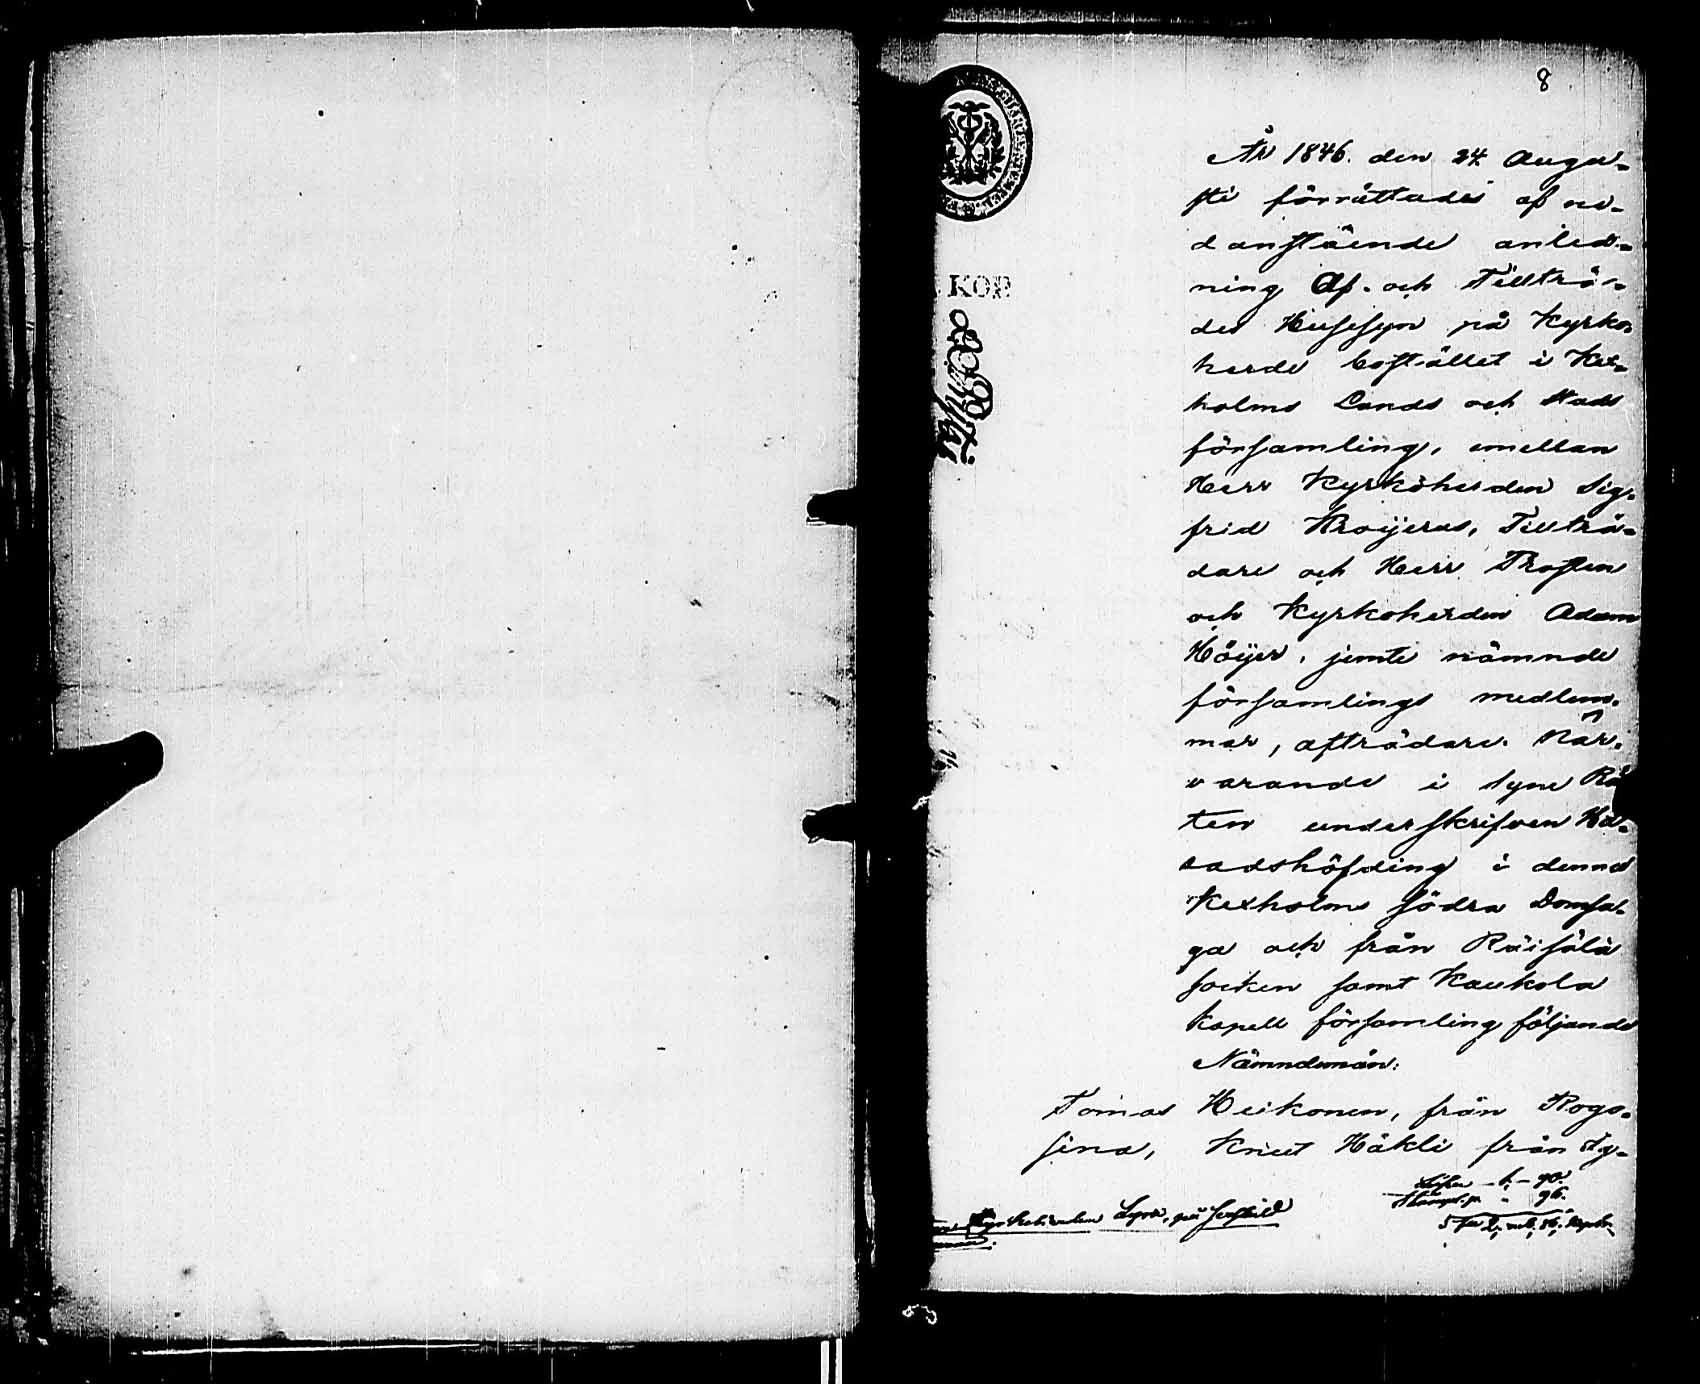 8
År 1846. den 24. Augu-
sti förrättades af ne-
danstående anled-
ning Af- och Tillträ-
des Husesyn på Kyrko-
herde bostället i Kex-
holms Lands och Stads
församling, emellan
Herr Kyrkoherden Sig-
frid Kroijerus, Tillträ-
dare och Herr Prosten
och Kyrkoherden Adam
Höijer, jemte nämnde
församlings medlem-
mar, afträdare. När-
varande i syne Rä
ten underskrifven Hä-
radshöfding i denna
Kexholms södra Domsa-
ga och från Räisälä
socken samt Kaukola
kapell församling följande
Nämndemän:
Tomas Heikonen, från Rogo-
sina, Knut Häkli från Ty-
Lösen 90.
96.